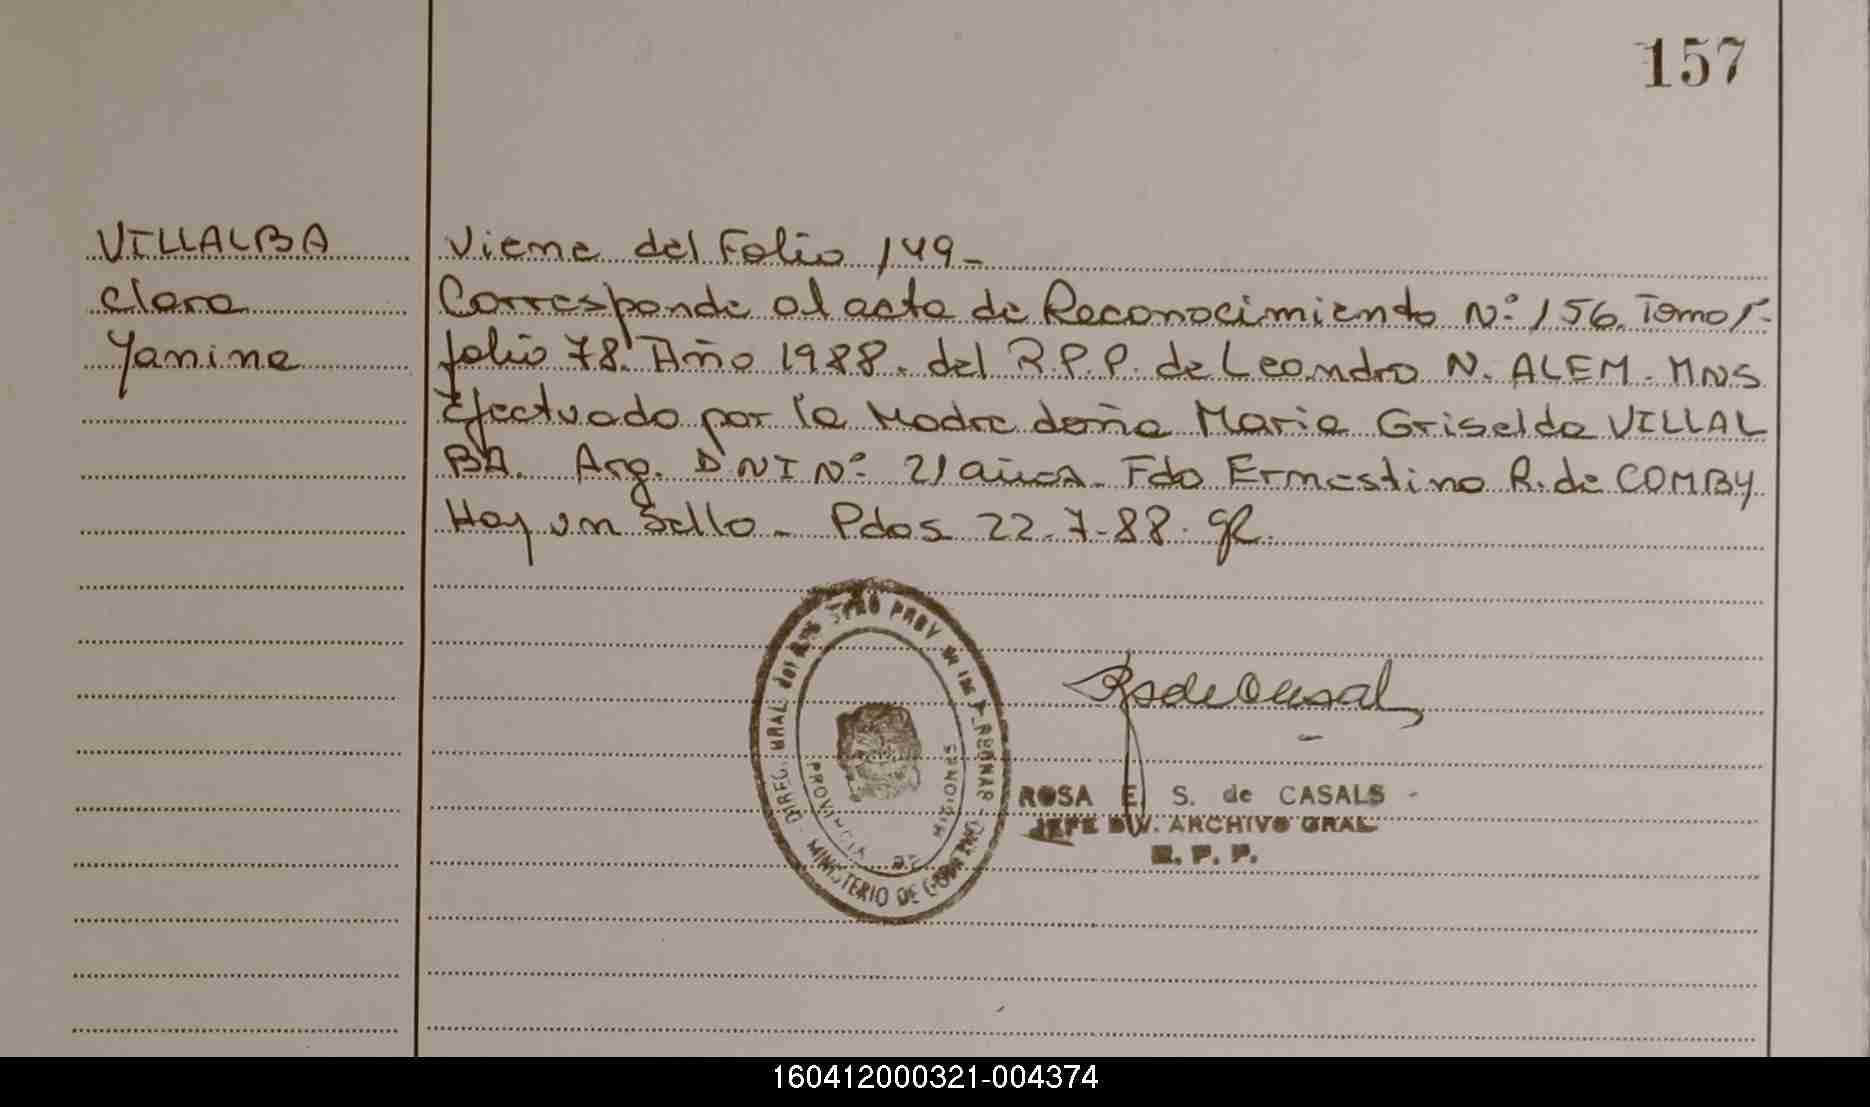 157
VILLALBA
Clara
Yanina
Viene del Folio 149-
Corresponde al acta de Reconocimiento Nº 156. Tomo 1º-
folio 78. Año 1988. del R.P.P. de Leandro N. ALEM. MNS
Efectuado por la Madre doña Maria Griselda VILLAL
BA. Arg. DNI Nº 21 años. Fdo Ernestina R. de COMBY
Hay un Sello - Pdas 22-7-88.
DIREC. GRAL. del REGISTRO PROV. de las PERSONAS
MINISTERIO DE GOBIERNO
PROVINCIA DE MISIONES
ROSA E. S. de CASALS
JEFE DIV. ARCHIVO GRAL
R. P. P.
160412000321-004374